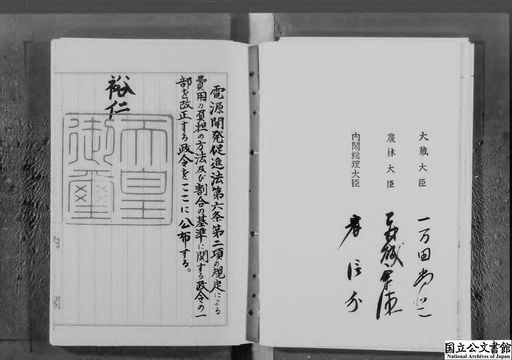 電源開発促進法第六条第二項の規定による
費用の負担の方法及び割合の基準に関する政令の一
部を改正する政令をここに公布する。
裕仁
天皇
御璽
大蔵大臣 一万田尚登
農林大臣
内閣総理大臣 岸信介
国立公文書館
National Archives of Japan